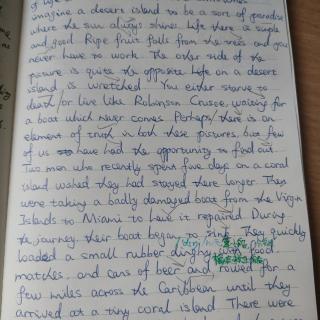 imagine a desert island to be a sort of paradise
where the sun always shines. Life there is simple
and good. Ripe fruit falls from the trees and you
never have to work. The other side of the
picture is quite the opposite. Life on a desert
island is wretched. You either starve to
death or live like Robinson Crusoe, waiting for
a boat which never comes. Perhaps there is an
element of truth in both these pictures, but few
of us have had the opportunity to find out.
Two men who recently spent five days on a coral
island wished they had stayed there longer. They
were taking a badly damaged boat from the Virgin
Islands to Miami to have it repaired. During
the journey, their boat began to sink. They quickly
loaded a small rubber dinghy with food,
matches, and cans of beer and rowed for a
few miles across the Caribbean until they
arrived at a tiny coral island. There were